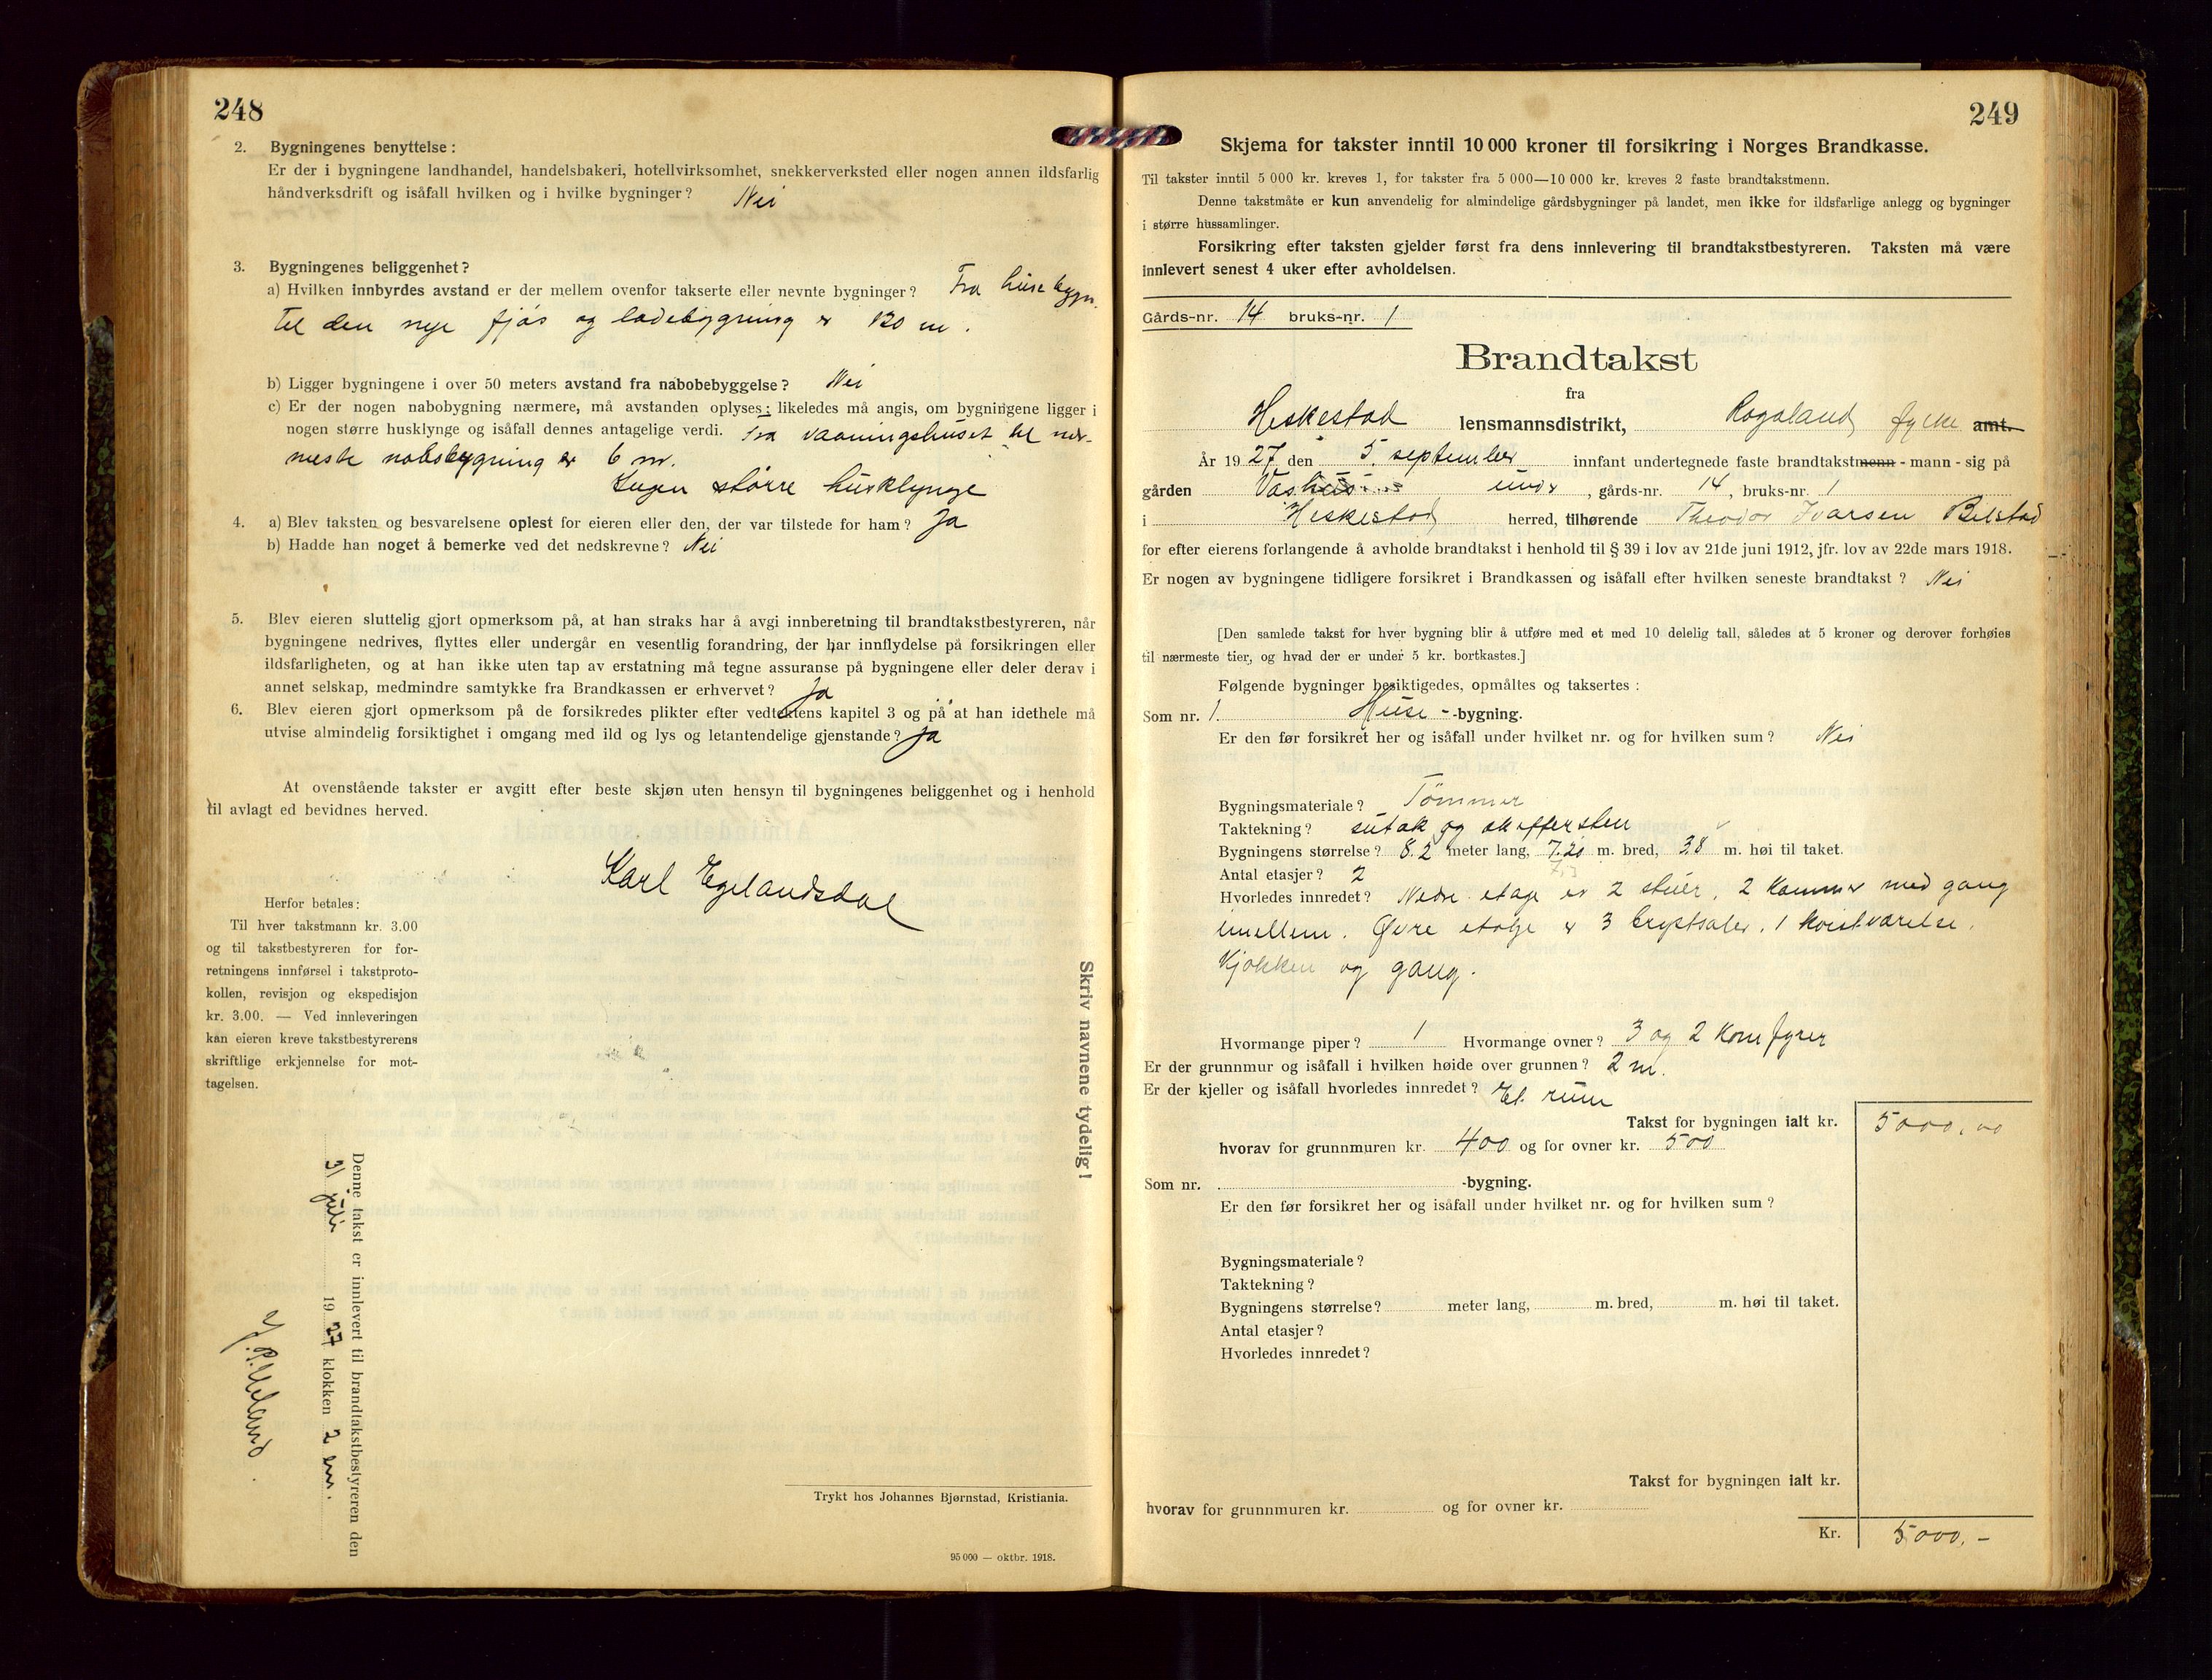 248
2. Bygningenes benyttelse:
Er der i bygningene landhandel, handelsbakeri, hotellvirksomhet, snekkerverksted eller nogen annen ildsfarlig
håndverksdrift og isåfall hvilken og i hvilke bygninger? Nei
3. Bygningenes beliggenhet?
a) Hvilken innbyrdes avstand er der mellem ovenfor takserte eller nevnte bygninger? Fra huse bygn.
til den nye fjøs og ladebygning er 120 m.
b) Ligger bygningene i over 50 meters avstand fra nabobebyggelse? Nei
c) Er der nogen nabobygning nærmere, må avstanden oplyses; likeledes må angis, om bygningene ligger i
nogen større husklynge og isåfall dennes antagelige verdi. Fra vaaningshuset til nær-
meste nabobygning er 6 m.
Ingen større husklynge
4. a) Blev taksten og besvarelsene oplest for eieren eller den, der var tilstede for ham? Ja
b) Hadde han noget å bemerke ved det nedskrevne? Nei
5. Blev eieren sluttelig gjort opmerksom på, at han straks har å avgi innberetning til brandtakstbestyreren, når
bygningene nedrives, flyttes eller undergår en vesentlig forandring, der har innflydelse på forsikringen eller
ildsfarligheten, og at han ikke uten tap av erstatning må tegne assuranse på bygningene eller deler derav i
annet selskap, medmindre samtykke fra Brandkassen er erhvervet? Ja
6. Blev eieren gjort opmerksom på de forsikredes plikter efter vedtektens kapitel 3 og på at han idethele må
utvise almindelig forsiktighet i omgang med ild og lys og letantendelige gjenstande? Ja
At ovenstående takster er avgitt efter beste skjøn uten hensyn til bygningenes beliggenhet og i henhold
til avlagt ed bevidnes herved.
Karl Egelandsdal
Herfor betales:
Til hver takstmann kr. 3.00
og til takstbestyreren for for-
retningens innførsel i takstproto-
kollen, revisjon og ekspedisjon
kr. 3.00. — Ved innleveringen
kan eieren kreve takstbestyrerens
skriftlige erkjennelse for mot-
tagelsen.
Skriv navnene tydelig!
Denne takst er innlevert til brandtakstbestyreren den
31 juli 1927 klokken 2 em.
Trykt hos Johannes Bjørnstad, Kristiania.
95 000 — oktbr. 1918.
249
Skjema for takster inntil 10 000 kroner til forsikring i Norges Brandkasse.
Til takster inntil 5 000 kr. kreves 1, for takster fra 5 000—10 000 kr. kreves 2 faste brandtakstmenn.
Denne takstmåte er kun anvendelig for almindelige gårdsbygninger på landet, men ikke for ildsfarlige anlegg og bygninger
i større hussamlinger.
Forsikring efter taksten gjelder først fra dens innlevering til brandtakstbestyreren. Taksten må være
innlevert senest 4 uker efter avholdelsen.
Gårds-nr. 14 bruks-nr. 1
Brandtakst
fra
Heskestad lensmannsdistrikt, Rogaland fylke amt.
År 1927 den 5. september innfant undertegnede faste brandtakstmenn - mann - sig på
gården Vashus , gårds-nr. 14, bruks-nr. 1
i Heskestad herred, tilhørende Theodor Ivarsen Bilstad
for efter eierens forlangende å avholde brandtakst i henhold til § 39 i lov av 21de juni 1912, jfr. lov av 22de mars 1918.
Er nogen av bygningene tidligere forsikret i Brandkassen og isåfall efter hvilken seneste brandtakst? Nei
[Den samlede takst for hver bygning blir å utføre med et med 10 delelig tall, således at 5 kroner og derover forhøies
til nærmeste tier, og hvad der er under 5 kr. bortkastes.]
Følgende bygninger besiktigedes, opmåltes og taksertes:
Som nr. 1. Huse- -bygning.
Er den før forsikret her og isåfall under hvilket nr. og for hvilken sum? Nei
Bygningsmateriale? Tømmer
Taktekning? sutak og skiffersten
Bygningens størrelse? 8.2 meter lang, 7.20 m. bred, 3.8 m. høi til taket.
Antal etasjer? 2
Hvorledes innredet? Nedre etage er 2 stuer, 2 kammer med gang
imellem. Øvre etage er 3 , 1 kvistværelse,
kjøkken og gang.
Hvormange piper? 1 Hvormange ovner? 3 og 2 komfyrer
Er der grunnmur og isåfall i hvilken høide over grunnen? 2 m.
Er der kjeller og isåfall hvorledes innredet? Et rum
Takst for bygningen ialt kr. 5000,00
hvorav for grunnmuren kr. 400 og for ovner kr. 500
Som nr. -bygning.
Er den før forsikret her og isåfall under hvilket nr. og for hvilken sum?
Bygningsmateriale?
Taktekning?
Bygningens størrelse? meter lang, m. bred, m. høi til taket.
Antal etasjer?
Hvorledes innredet?
Takst for bygningen ialt kr.
hvorav for grunnmuren kr. og for ovner kr.
Kr. 5000,-